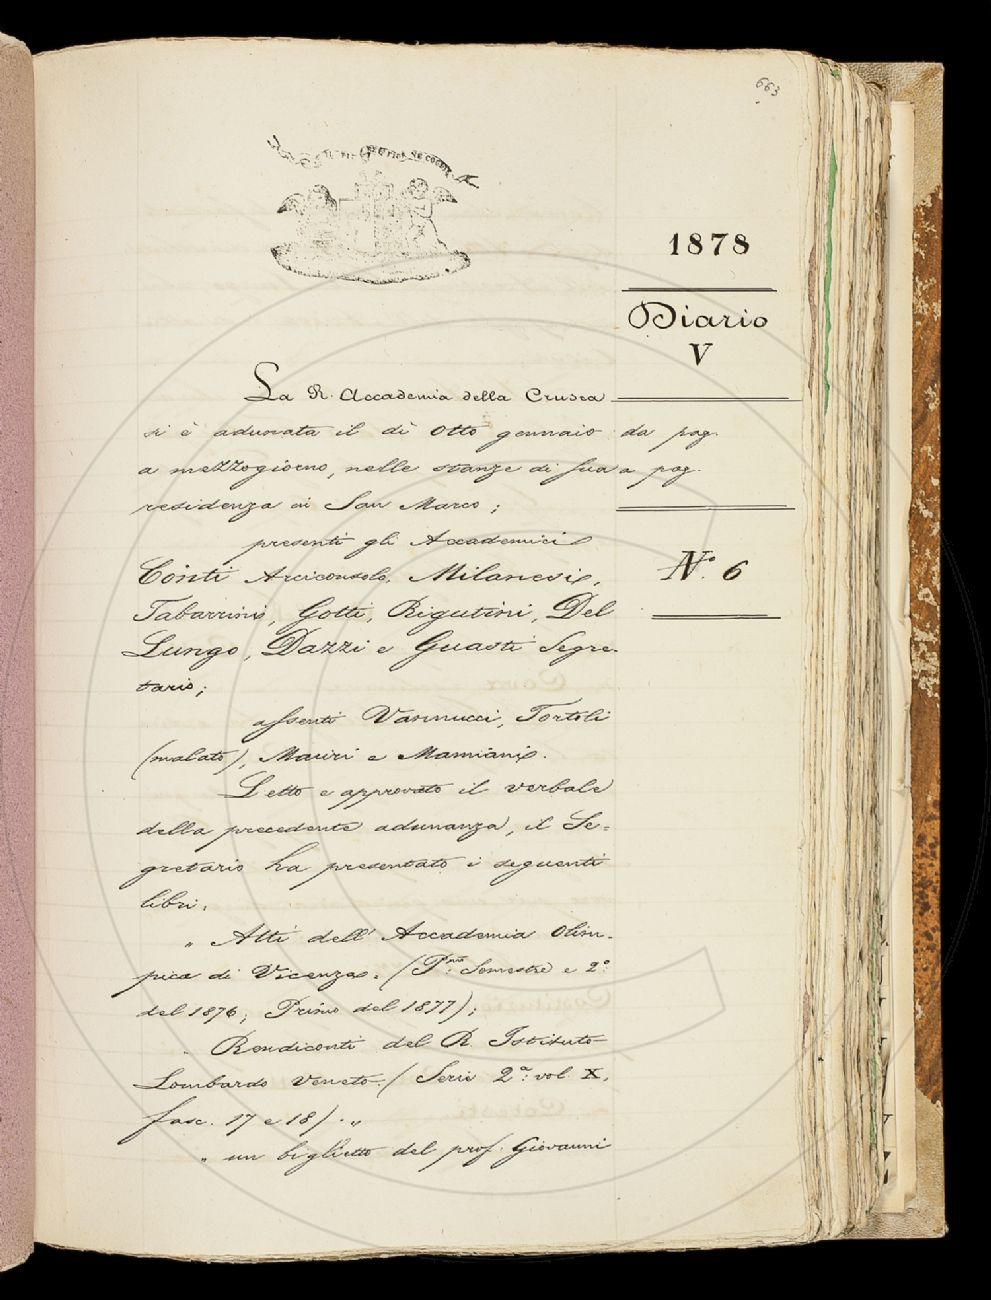 663
1878
Diario
V
La R. Accademia della Crusca
si è adunata il dì otto gennaio
da pag.
a mezzogiorno, nelle stanze di sua
a pag.
residenza in San Marco;
presenti gli Accademici
Conti Arciconsolo, Milanesi,
N.° 6
Tabarrini, Gotti, Rigutini, Del
Lungo, Dazzi e Guasti Segre-
tario;
assenti Vannucci, Tortoli
(malato), Mauri e Mamiani.
Letto e approvato il verbale
della precedente adunanza, il Se=
gretario ha presentato i seguenti
libri.
" Atti dell' Accademia Olim-
pica di Vicenza. (P.mo Semestre e 2°
del 1876; Primo del 1877);
" Rendiconti del R. Istituto
Lombardo Veneto. (Serie 2ª: vol. X,
fasc. 17 e 18). "
" un biglietto del prof. Giovanni